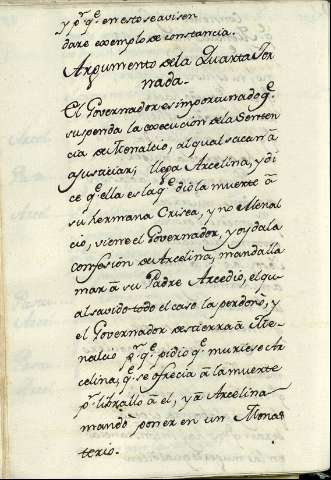 y pr. qe. en esto se avisen
dare exemplo de constancia.
Argumento de la Quarta Jor
nada.
El Governador es importunado qe.
suspenda la execucion de la Senten
cia de Menalcio, al qual sacan à
ajusticiar; llega Arcelina, y di
ce qe. ella es la qe. dió la muerte à
su hermana Crisea, y no Menal
cio, viene el Governador, y oyda la
confesion de Arcelina, manda lla
mar à su Padre Arcedio, el qu
al savido todo el caso la perdonò, y
el Governador destierra à Me-
nalcio pr. qe. pidio qe. muriese Ar
celina, qe. se ofrecia à la muerte
pr. librallo à el, y à Arcelina
mandò poner en un Monas
terio.